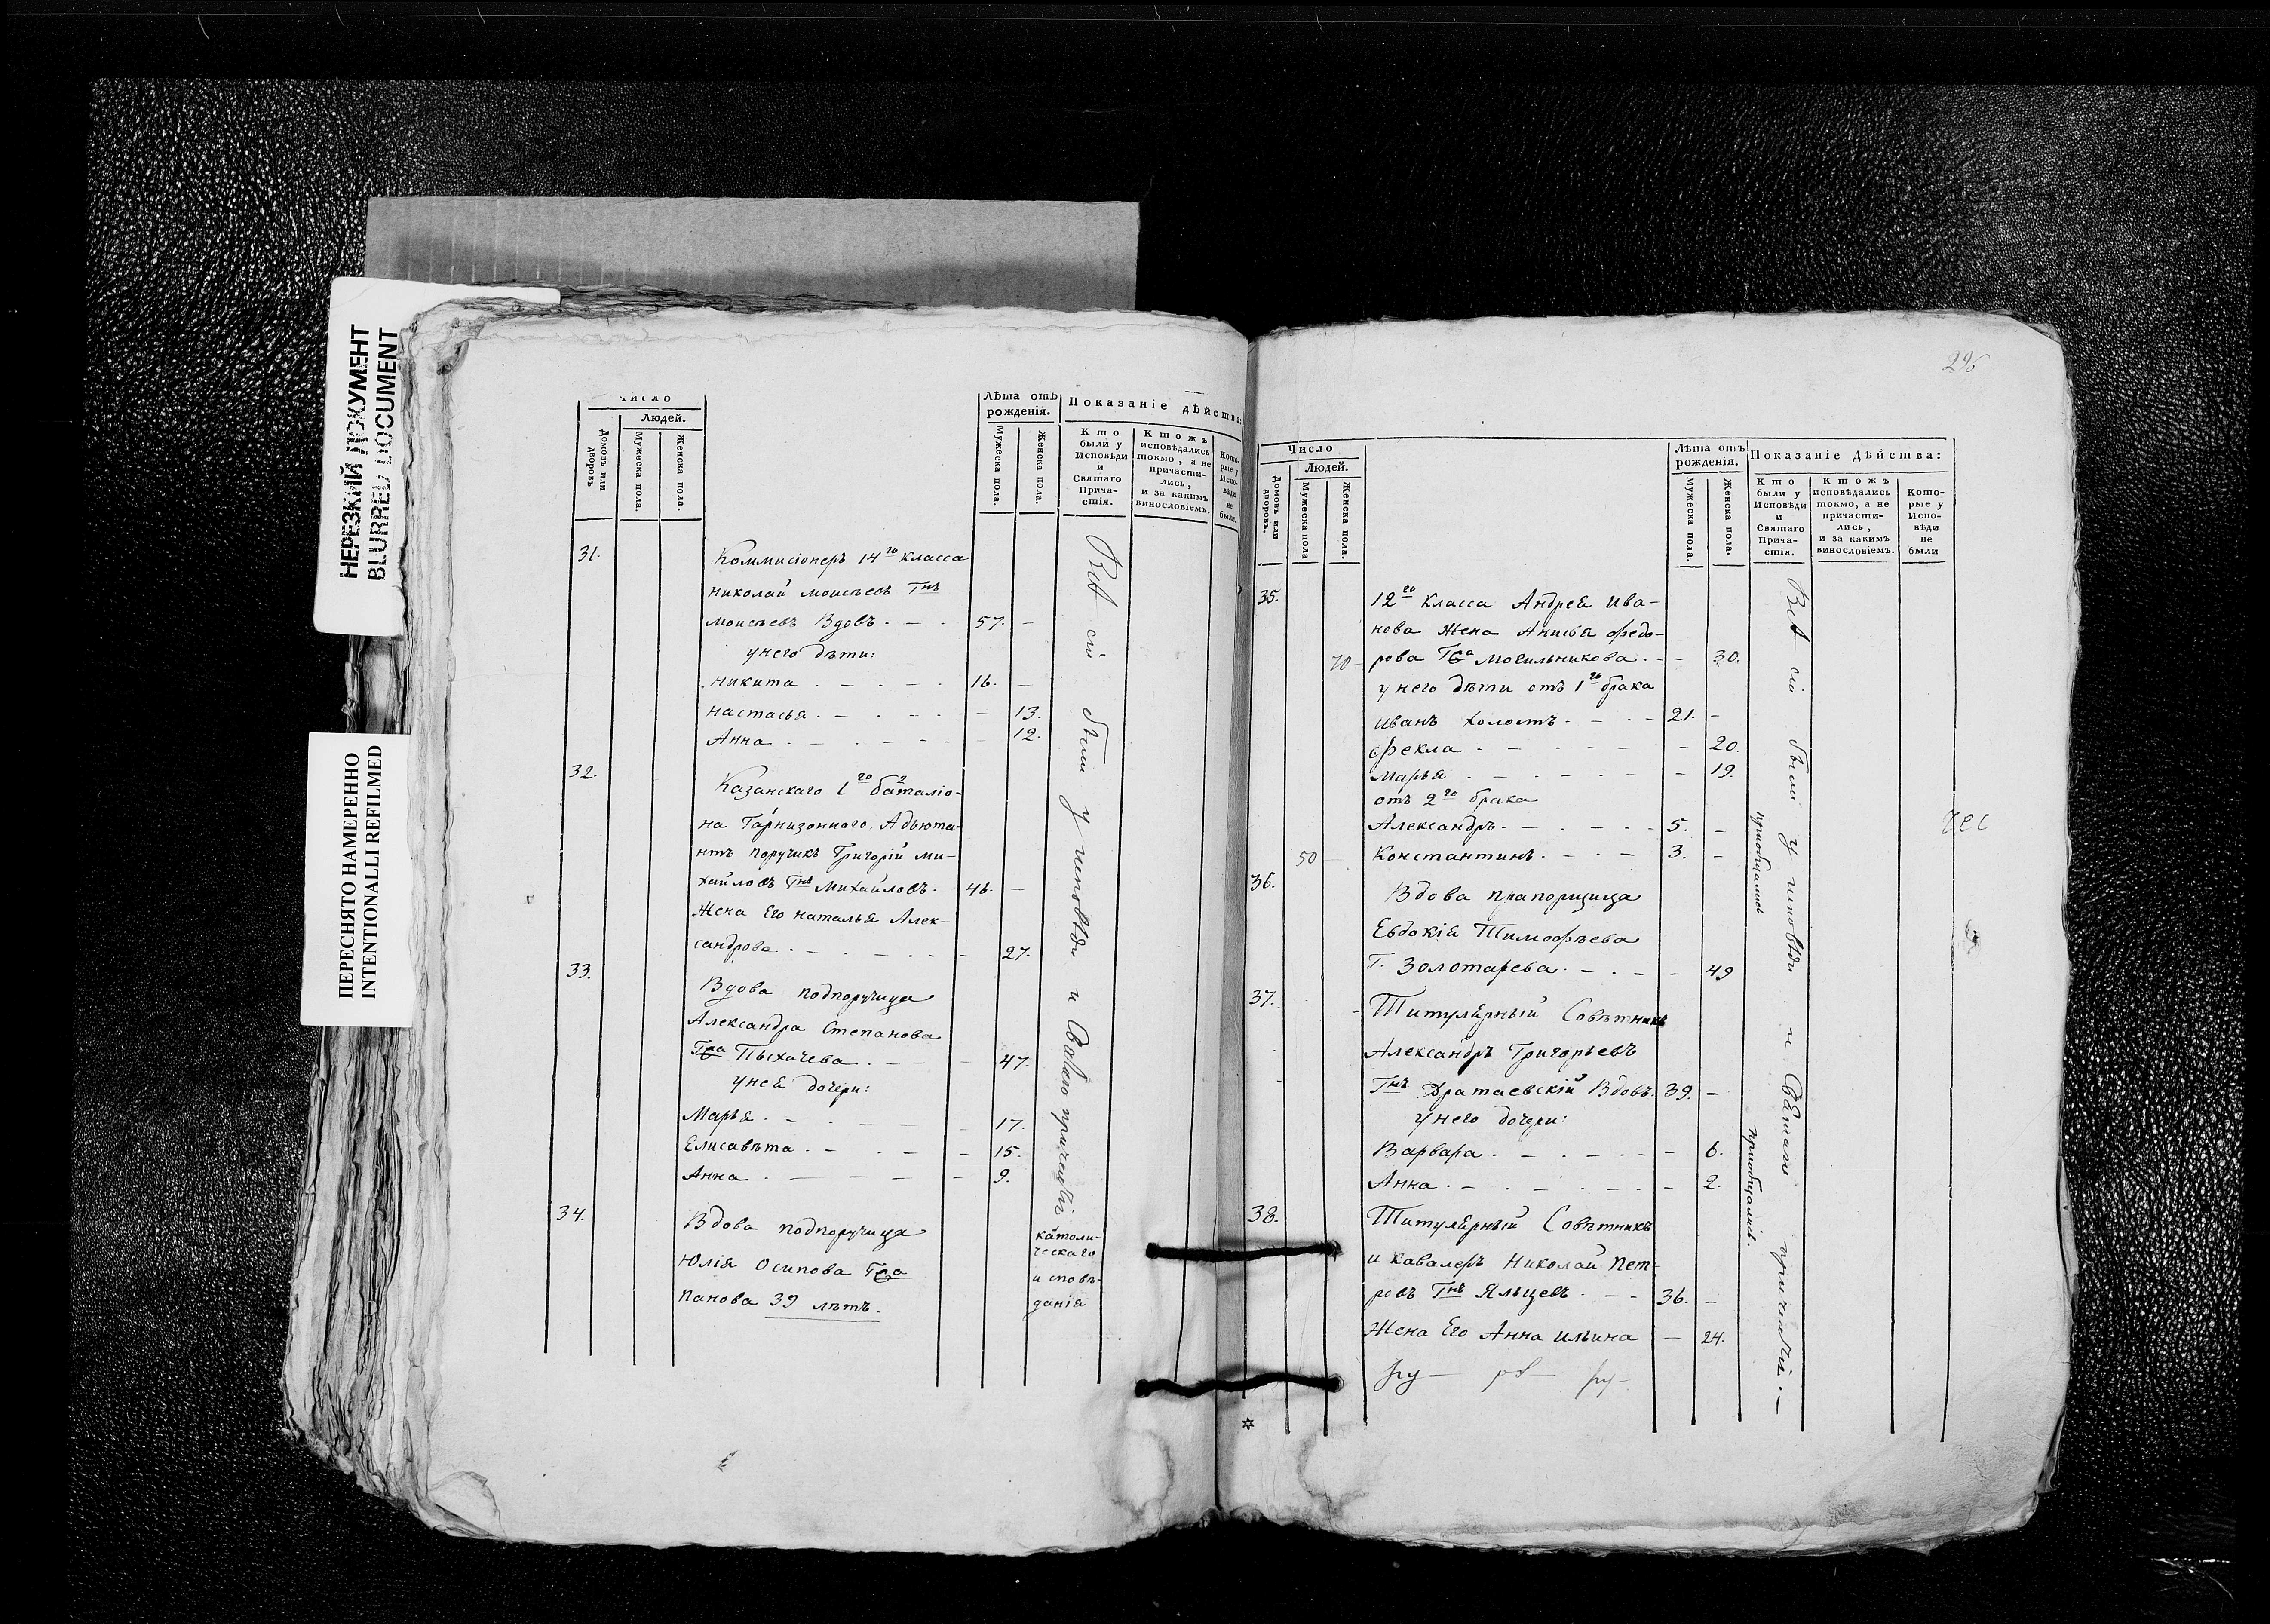 НЕРЕЗКИЙ ДОКУМЕНТ
BLURRED DOCUMENT
ПЕРЕСНЯТО НАМЕРЕННО
INTENTIONALLI REFILMED
Число
Людей.
Домовъ или дворовъ
Мужеска пола.
Женска пола.
Лѣта отъ
рожденія.
Мужеска пола.
Женска пола.
Показаніе дѣйства:
Кто
были у
Исповѣди
и
Святаго
Прича-
стія.
Ктожъ
исповѣдались
токмо, а не
причасти-
лись,
и за какимъ
винословіемъ.
Кото-
рые у
Испо-
вѣди
не
были.
31.
Коммисіонеръ 14го класса
Николай Моисеевъ Гнъ
Моисеевъ Вдовъ. - . 57. -
у него дѣти:
Никита . - . - . 16. -
Настасья . - . - . - 13.
Анна . - . - - - 12.
32.
Казанскаго 1го баталіо-
на Гарнизоннаго Адьюта-
нтъ поручикъ Григорій Ми-
хайловъ Гнъ Михайловъ. 46. -
Жена Его Наталья Алек-
сандрова . . - . - . - - 27.
33.
Вдова подпоручица
Александра Степанова
Гжа Пыхачева . - - - 47.
у неѣ дочери:
Марья . - . - - - 17.
Елисавѣта . - . - - 15.
Анна . - - - - - 9.
34.
Вдова подпоручица
Юлія Осипова Гжа
Панова 39 лѣтъ.
католи-
ческаго
исповѣ-
данія
Всѣ сіи были у исповѣди и Святаго причастія
296
Число
Людей.
Домовъ или дворовъ.
Мужеска пола
Женска пола.
Лѣта отъ
рожденія.
Мужеска пола.
Женска пола.
Показаніе Дѣйства:
Кто
были у
Исповѣди
и
Святаго
Прича-
стія.
Ктожъ
исповѣдались
токмо, а не
причасти-
лись,
и за какимъ
винословіемъ.
Кото-
рые у
Испо-
вѣди
не
были
35.
12го класса Андрея Ива-
нова Жена Анисья Федо-
70 - рова Гжа Могильникова . - - 30.
у него дѣти отъ 1го брака
Иванъ холостъ . - . - 21. -
Фекла . - . - - - 20.
Марья . - . - . - - 19.
отъ 2го брака
Александръ . - . - . - 5. -
50 - Константинъ . - . - 3. -
36.
Вдова прапорщица
Евдокія Тимофѣева
Г. Золотарева . - . - - 49
37.
Титулярный Совѣтникъ
Александръ Григорьевъ
Гнъ Братаевскій Вдовъ. 39. -
у него дочери:
Варвара . - . - . - - 6.
Анна . - . - . - . - 2.
38.
Титулярный Совѣтникъ
и кавалеръ Николай Пет-
ровъ Гнъ Яльцевъ . - - 36. -
Жена Его Анна Ильина - 24.
Всѣ сіи были у исповѣди и Святаго причастія. -
приобщались
приобщались.